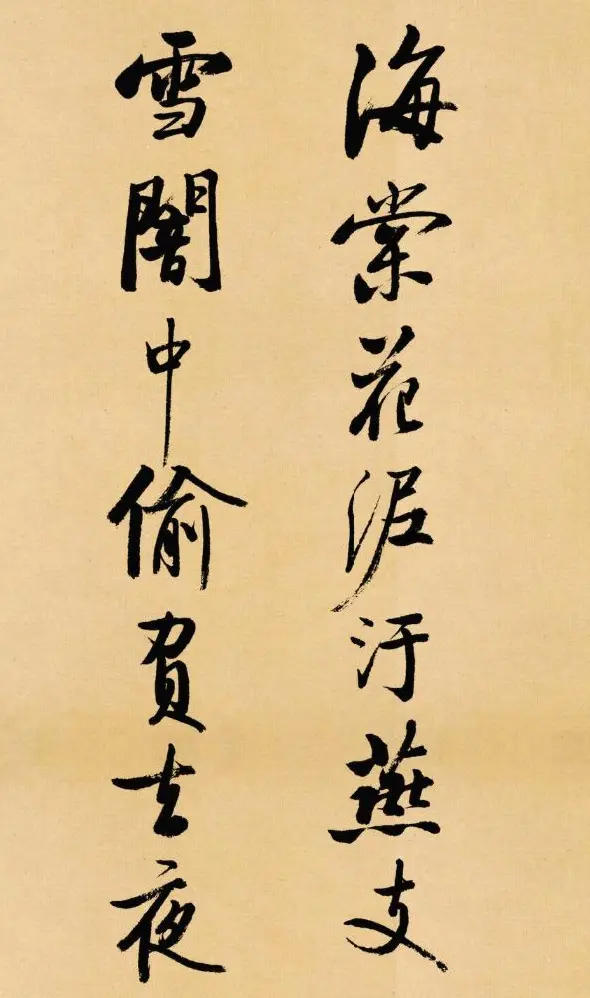 海棠花泥汙燕支
雪闇中偷負去夜